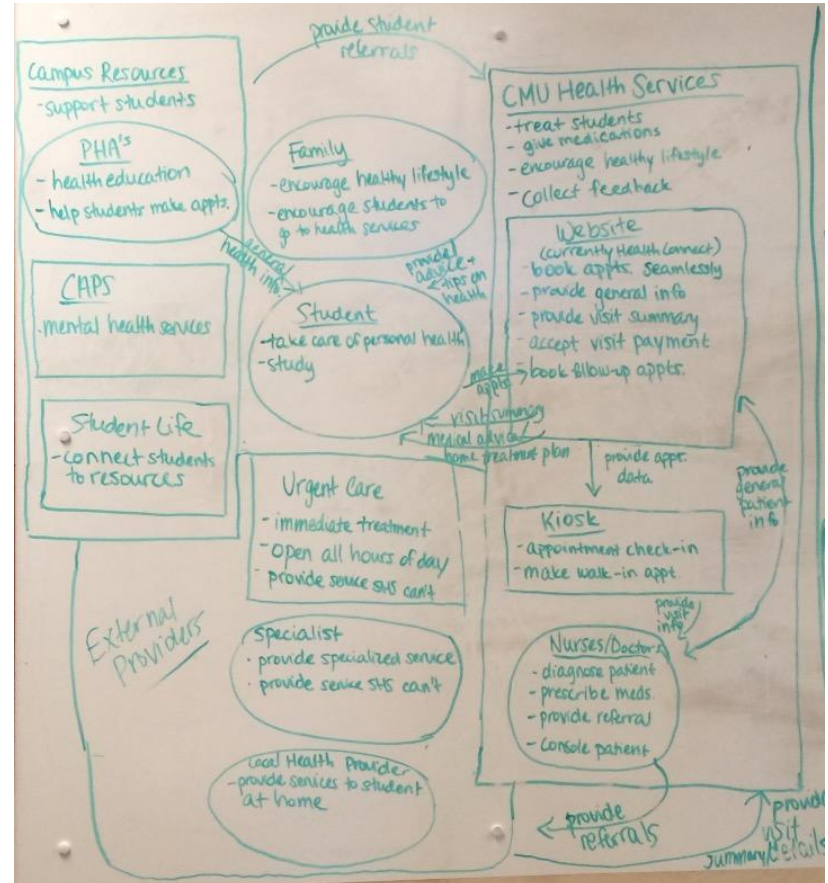 provide student
referrals
Campus Resources
-support students
PHA's
- health education
- help students make appts.
CAPS
-mental health services
Student Life
-connect students
to resources
Family
-encourage healthy lifestyle
-encourage students to
go to health services
general
health info.
provide
advice +
tips on
health
Student
-take care of personal health
-study
make
appts.
visit summary
medical advice/
home treatment plan
CMU Health Services
-treat students
- give medications
-encourage healthy lifestyle
-collect feedback
Website
(currently HealthConnect)
-book appts. seamlessly
-provide general info
-provide visit summary
-accept visit payment
-book follow-up appts.
provide appt.
data
provide
general
patient
info
Kiosk
-appointment check-in
-make walk-in appt.
provide
visit
info
Nurses/Doctors
-diagnose patient
-prescribe meds.
-provide referral
-console patient
External
Providers
Urgent Care
-immediate treatment
-open all hours of day
-provide service SHS can't
Specialist
· provide specialized service
· provide service SHS can't
Local Health Provider
-provide services to student
at home
provide
referrals
provide
visit
summary/details